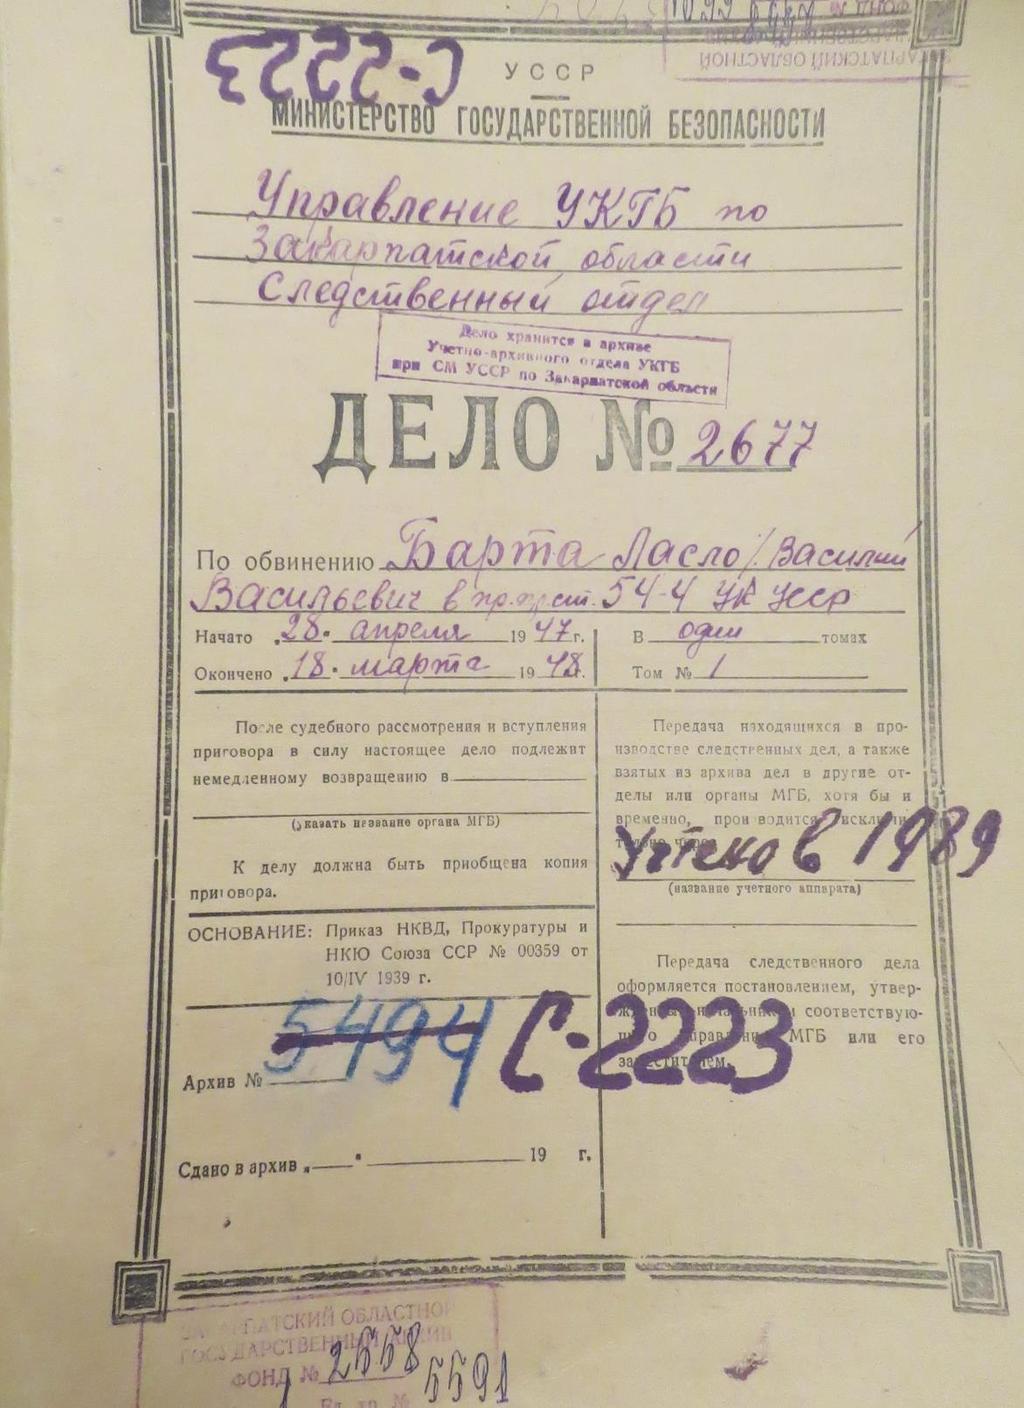 С-2223
ЗАКАРПАТСКИЙ ОБЛАСТНОЙ
ФОНД №
УССР
МИНИСТЕРСТВО ГОСУДАРСТВЕННОЙ БЕЗОПАСНОСТИ
Управление УКГБ по
Закарпатской области
Следственный отдел
Дело хранится в архиве
Учетно-архивного отдела УКГБ
при СМ УССР по Закарпатской области
ДЕЛО № 2677
По обвинению Барта Ласло/Василий
Васильевич в пр. пр. ст. 54-4 УК УССР
Начато „28" апреля 1947 г.
Окончено „18" марта 1948 г.
В один томах
Том № 1
После судебного рассмотрения и вступления
приговора в силу настоящее дело подлежит
немедленному возвращению в
(указать название органа МГБ)
К делу должна быть приобщена копия
приговора.
ОСНОВАНИЕ: Приказ НКВД, Прокуратуры и
НКЮ Союза ССР № 00359 от
10/IV 1939 г.
Архив № 5494 С-2223
Сдано в архив „ " 19 г.
Передача находящихся в про-
изводстве следственных дел, а также
взятых из архива дел в другие от-
делы или органы МГБ, хотя бы и
временно, производится исключи-
тельно через
Учтено в 1989
(название учетного аппарата)
Передача следственного дела
оформляется постановлением, утвер-
соответствую-
МГБ или его
заместителем.
ЗАКАРПАТСКИЙ ОБЛАСТНОЙ
ГОСУДАРСТВЕННЫЙ АРХИВ
ФОНД № 2558
Ед. хр. № 5591